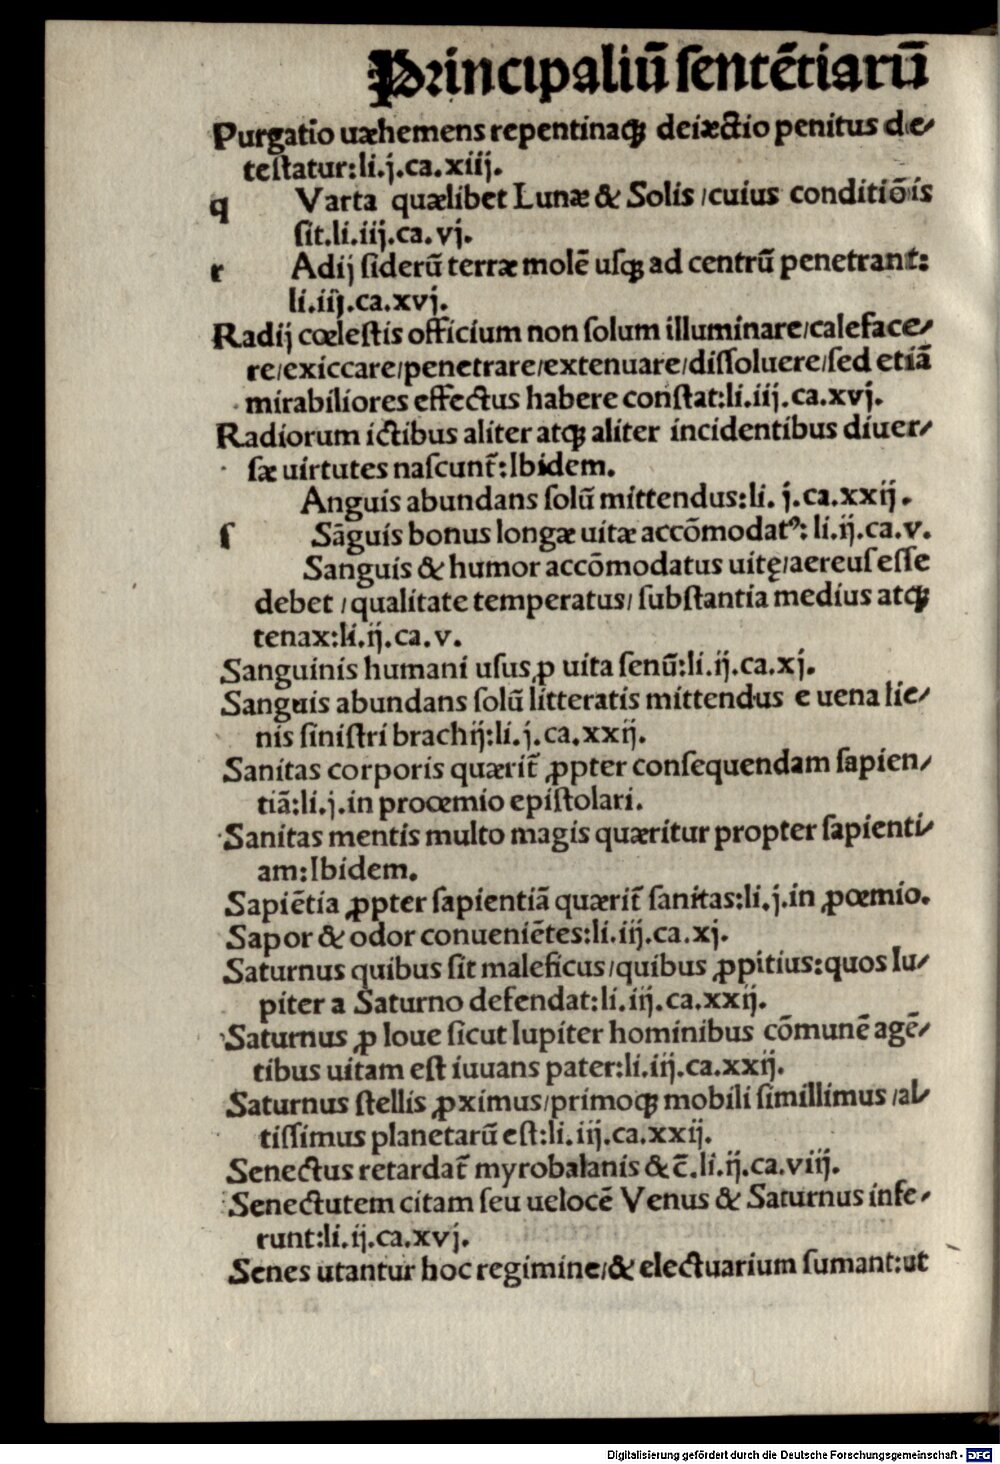 Principaliū ſentētiarū
Purgatio uæhemens repentinaqꝫ deiæctio penitus de⸗
teſtatur:li.j.ca.xiij.
q Varta quælibet Lunæ & Solis /cuius conditiōis
ſit.li.iij.ca.vj.
r Adij ſiderū terræ molē uſqꝫ ad centrū penetrant:
li.iij.ca.xvj.
Radij cœleſtis officium non ſolum illuminare/caleface⸗
re/exiccare/penetrare/extenuare/diſſoluere/ſed etiā
mirabiliores effectus habere conſtat:li.iij.ca.xvj.
Radiorum ictibus aliter atqꝫ aliter incidentibus diuer⸗
ſæ uirtutes naſcunt̄:Ibidem.
Anguis abundans ſolū mittendus:li. j.ca.xxij.
ſ Sāguis bonus longæ uitæ accōmodatꝰ: li.ij.ca.v.
Sanguis & humor accōmodatus uitę/aereuſ eſſe
debet /qualitate temperatus/ ſubſtantia medius atqꝫ
tenax:li.ij.ca.v.
Sanguinis humani uſus ꝓ uita ſenū:li.ij.ca.xj.
Sanguis abundans ſolū litteratis mittendus e uena lie⸗
nis ſiniſtri brachij:li.j.ca.xxij.
Sanitas corporis quærit̄ ꝓpter conſequendam ſapien⸗
tiā:li.j.in proœmio epiſtolari.
Sanitas mentis multo magis quæritur propter ſapienti⸗
am:Ibidem.
Sapiētia ꝓpter ſapientiā quærit̄ ſanitas:li.j.in ꝓœmio.
Sapor & odor conueniētes:li.iij.ca.xj.
Saturnus quibus ſit maleficus/quibus ꝓpitius:quos Iu⸗
piter a Saturno defendat:li.iij.ca.xxij.
Saturnus ꝓ Ioue ſicut Iupiter hominibus cōmunē agē⸗
tibus uitam eſt iuuans pater:li.iij.ca.xxij.
Saturnus ſtellis ꝓximus/primoqꝫ mobili ſimillimus /al⸗
tiſſimus planetarū eſt:li.iij.ca.xxij.
Senectus retardat̄ myrobalanis & c̄.li.ij.ca.viij.
Senectutem citam ſeu uelocē Venus & Saturnus infe⸗
runt:li.ij.ca.xvj.
Senes utantur hoc regimine/& electuarium ſumant:ut
Digitalisierung gefördert durch die Deutsche Forschungsgemeinschaft - DFG